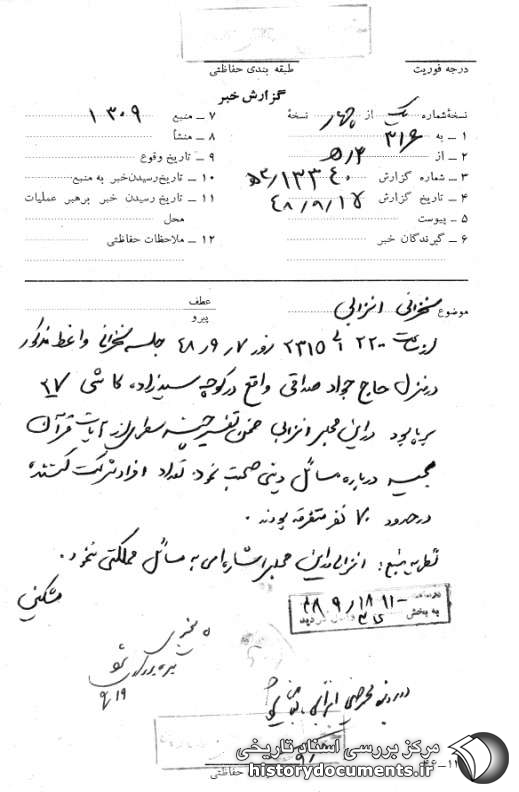 درجه فوریت
طبقه بندی حفاظتی
گزارش خبر
نسخهٔ شماره یک از چهار نسخهٔ
۱ ــ به ۳۱۶
۲ ــ از ۴/ه
۳ ــ شماره گزارش ۱۳۳۴۰/ه۴
۴ ــ تاریخ گزارش ۴۸/۹/۱۷
۵ ــ پیوست
۶ ــ گیرندگان خبر
۷ ــ منبع ۱۳۰۹
۸ ــ منشأ
۹ ــ تاریخ وقوع
۱۰ ــ تاریخ رسیدن خبر به منبع
۱۱ ــ تاریخ رسیدن خبر برهبر عملیات محل
۱۲ ــ ملاحظات حفاظتی
موضوع سخنرانی انزابی
عطف
پیرو
از ساعت ۲۲۰۰ الی ۲۳۱۵ روز ۴۸/۹/۷ جلسه سخنرانی واعظ مذکور
در منزل حاج جواد صداقی واقع در کوچه سیدزاده کاشی ۳۷
برپا بود در این مجلس انزابی ضمن تفسیر چند سطری از آیات قرآن
مجید درباره مسائل دینی صحبت نمود. تعداد افراد شرکت کننده
در حدود ۷۰ نفر متفرقه بودند.
نظریه منبع: انزابی در این مجلس اشاره‌ای به مسائل مملکتی ننمود.
مشکین
۴۸/۹/۱۸
به بخش
گردید
۹/۱۹
در پرونده
حفاظتی
مرکز بررسی اسناد تاریخی
historydocuments.ir